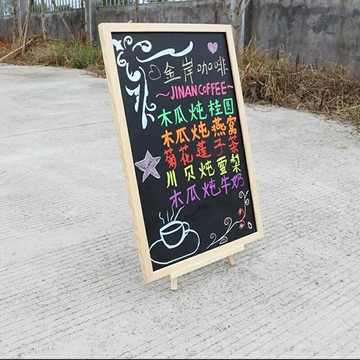 金岸咖啡
~JINANCOFFEE~
木瓜炖桂园
木瓜炖燕窝
菊花莲子茶
川贝炖雪梨
木瓜炖牛奶